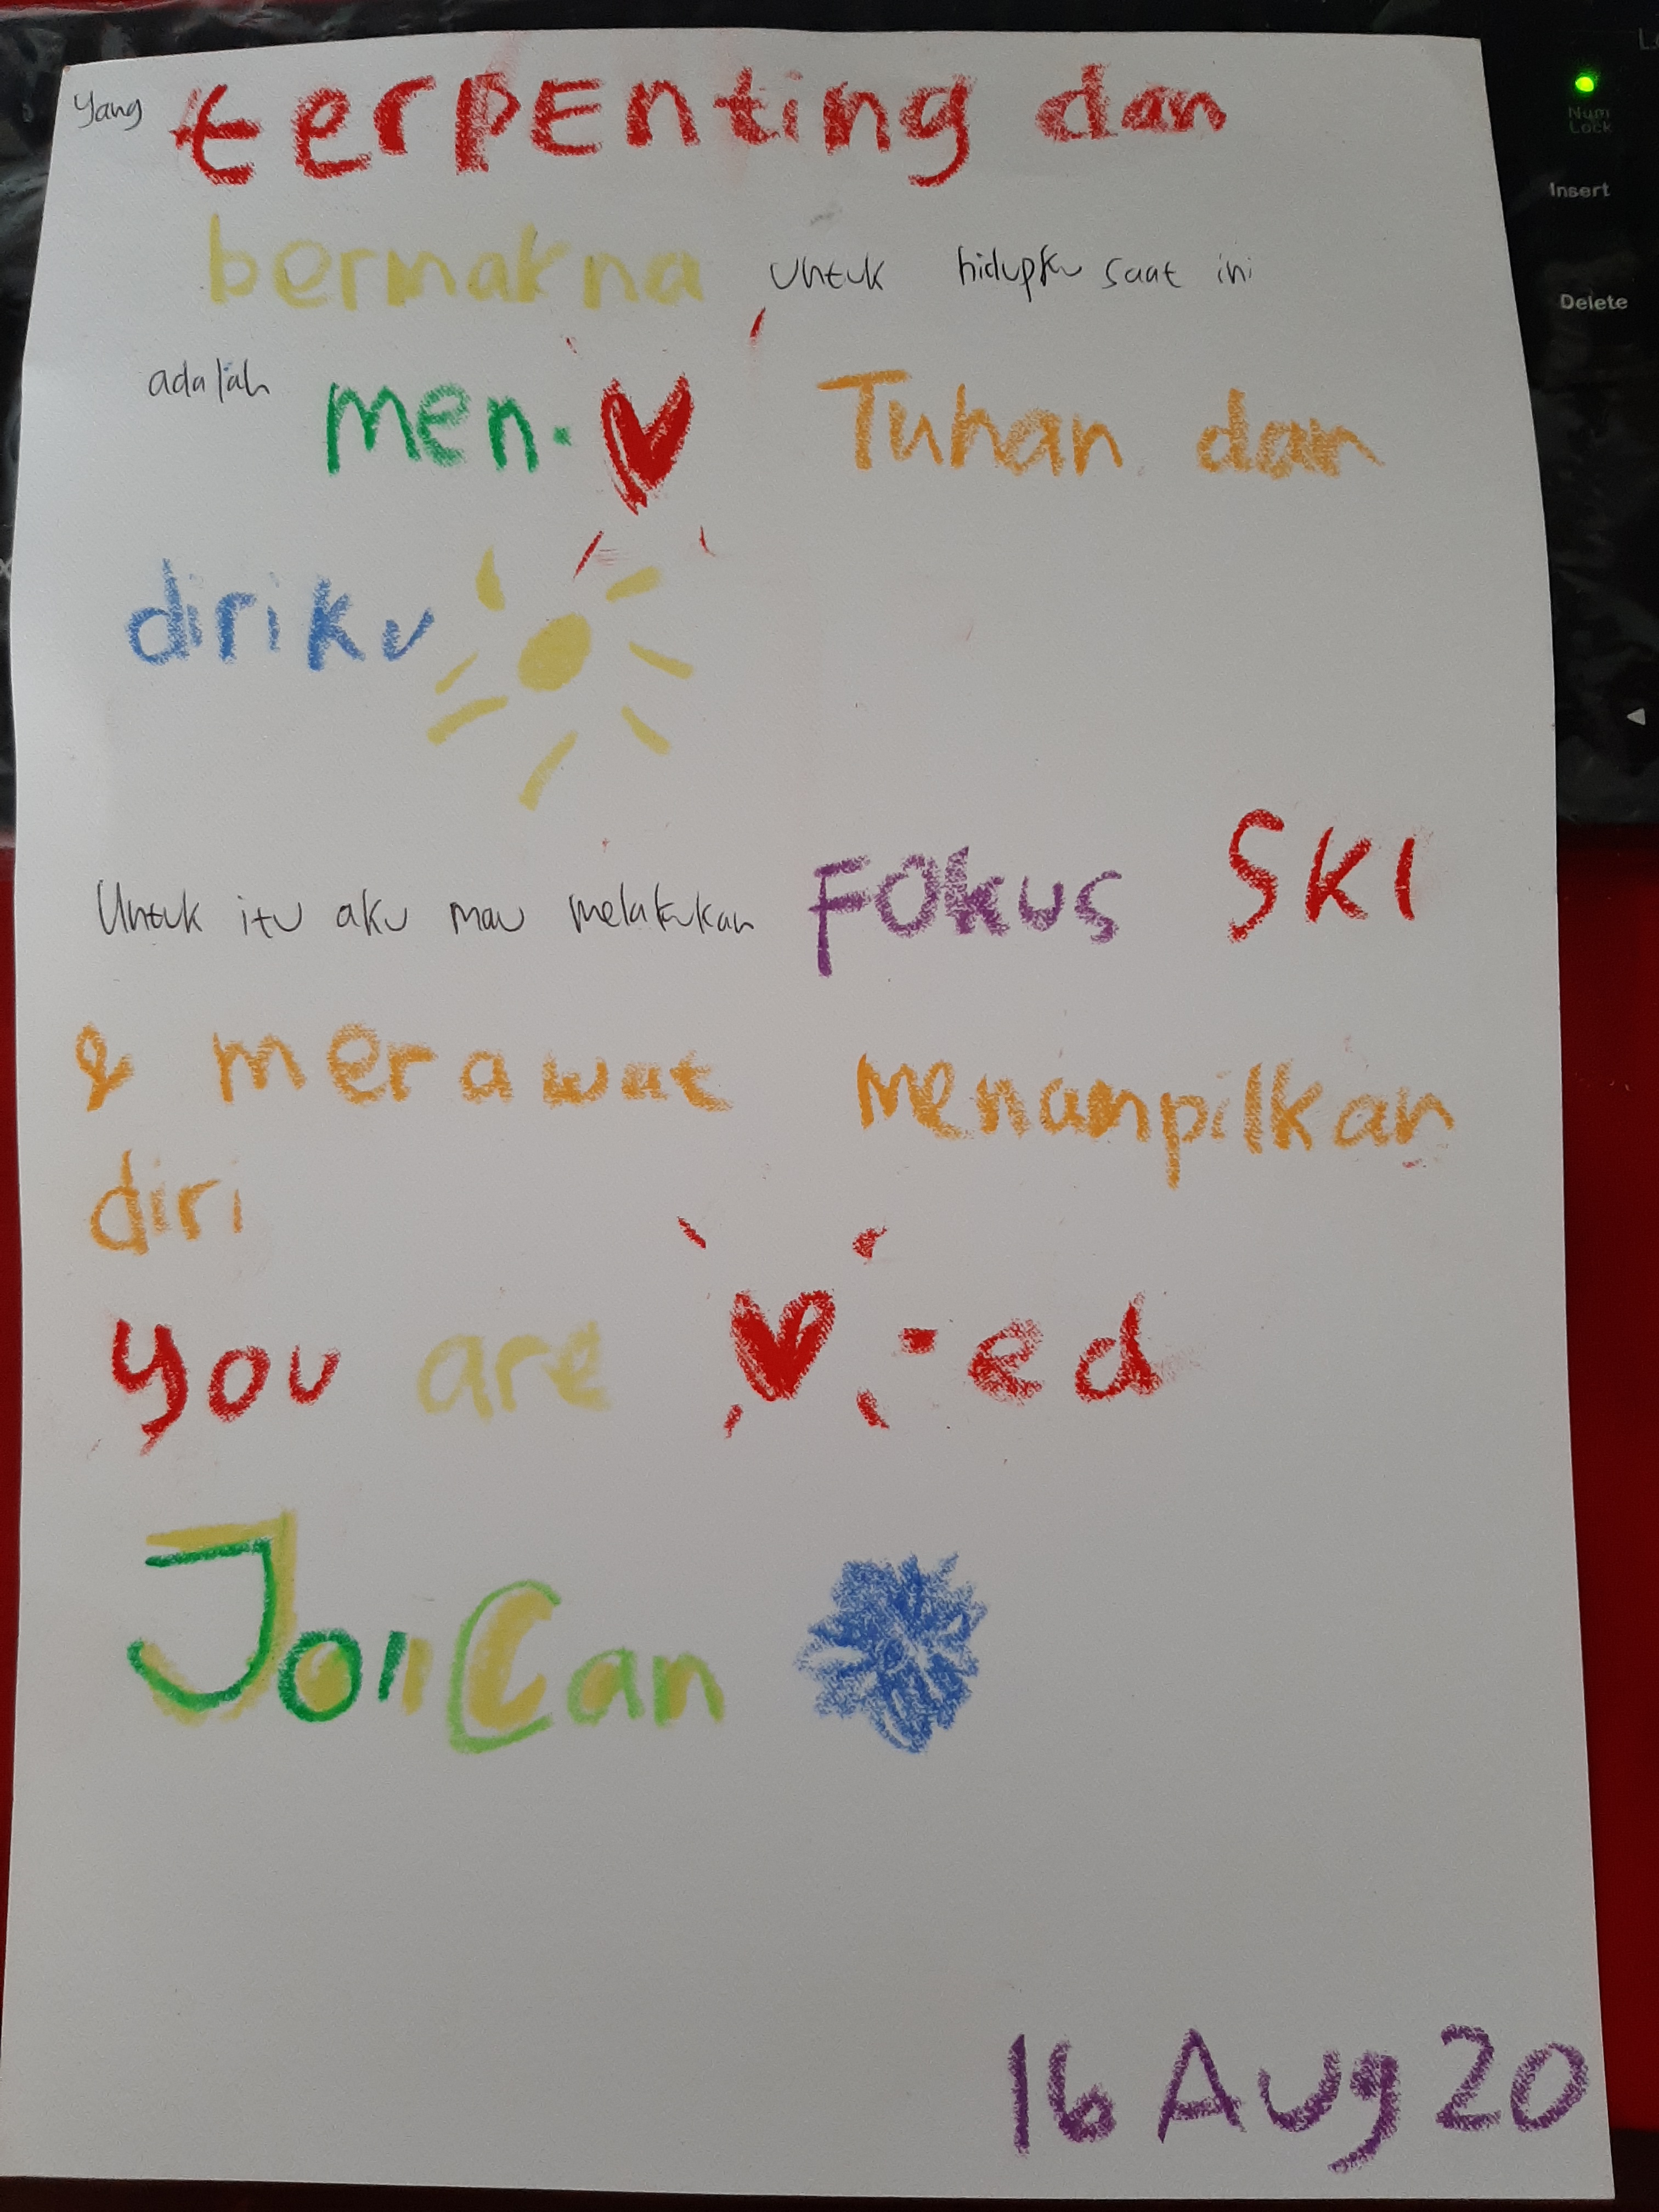 Yang terpEnting dan
bermakna untuk hidupku saat ini
adalah men-❤ Tuhan dan
diriku
Untuk itu aku mau melakukan FOkus SKI
& merawat menampilkan
diri
you are ❤-ed
16 Aug 20
Num
Lock
Insert
Delete